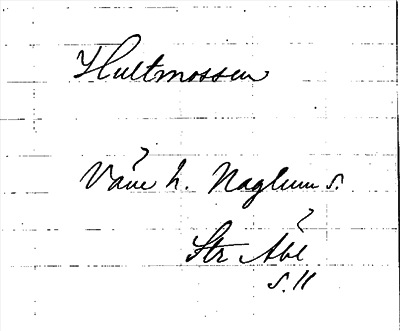 Hultmossen
Väne h. Naglum s.
Str Åbe
s. 11